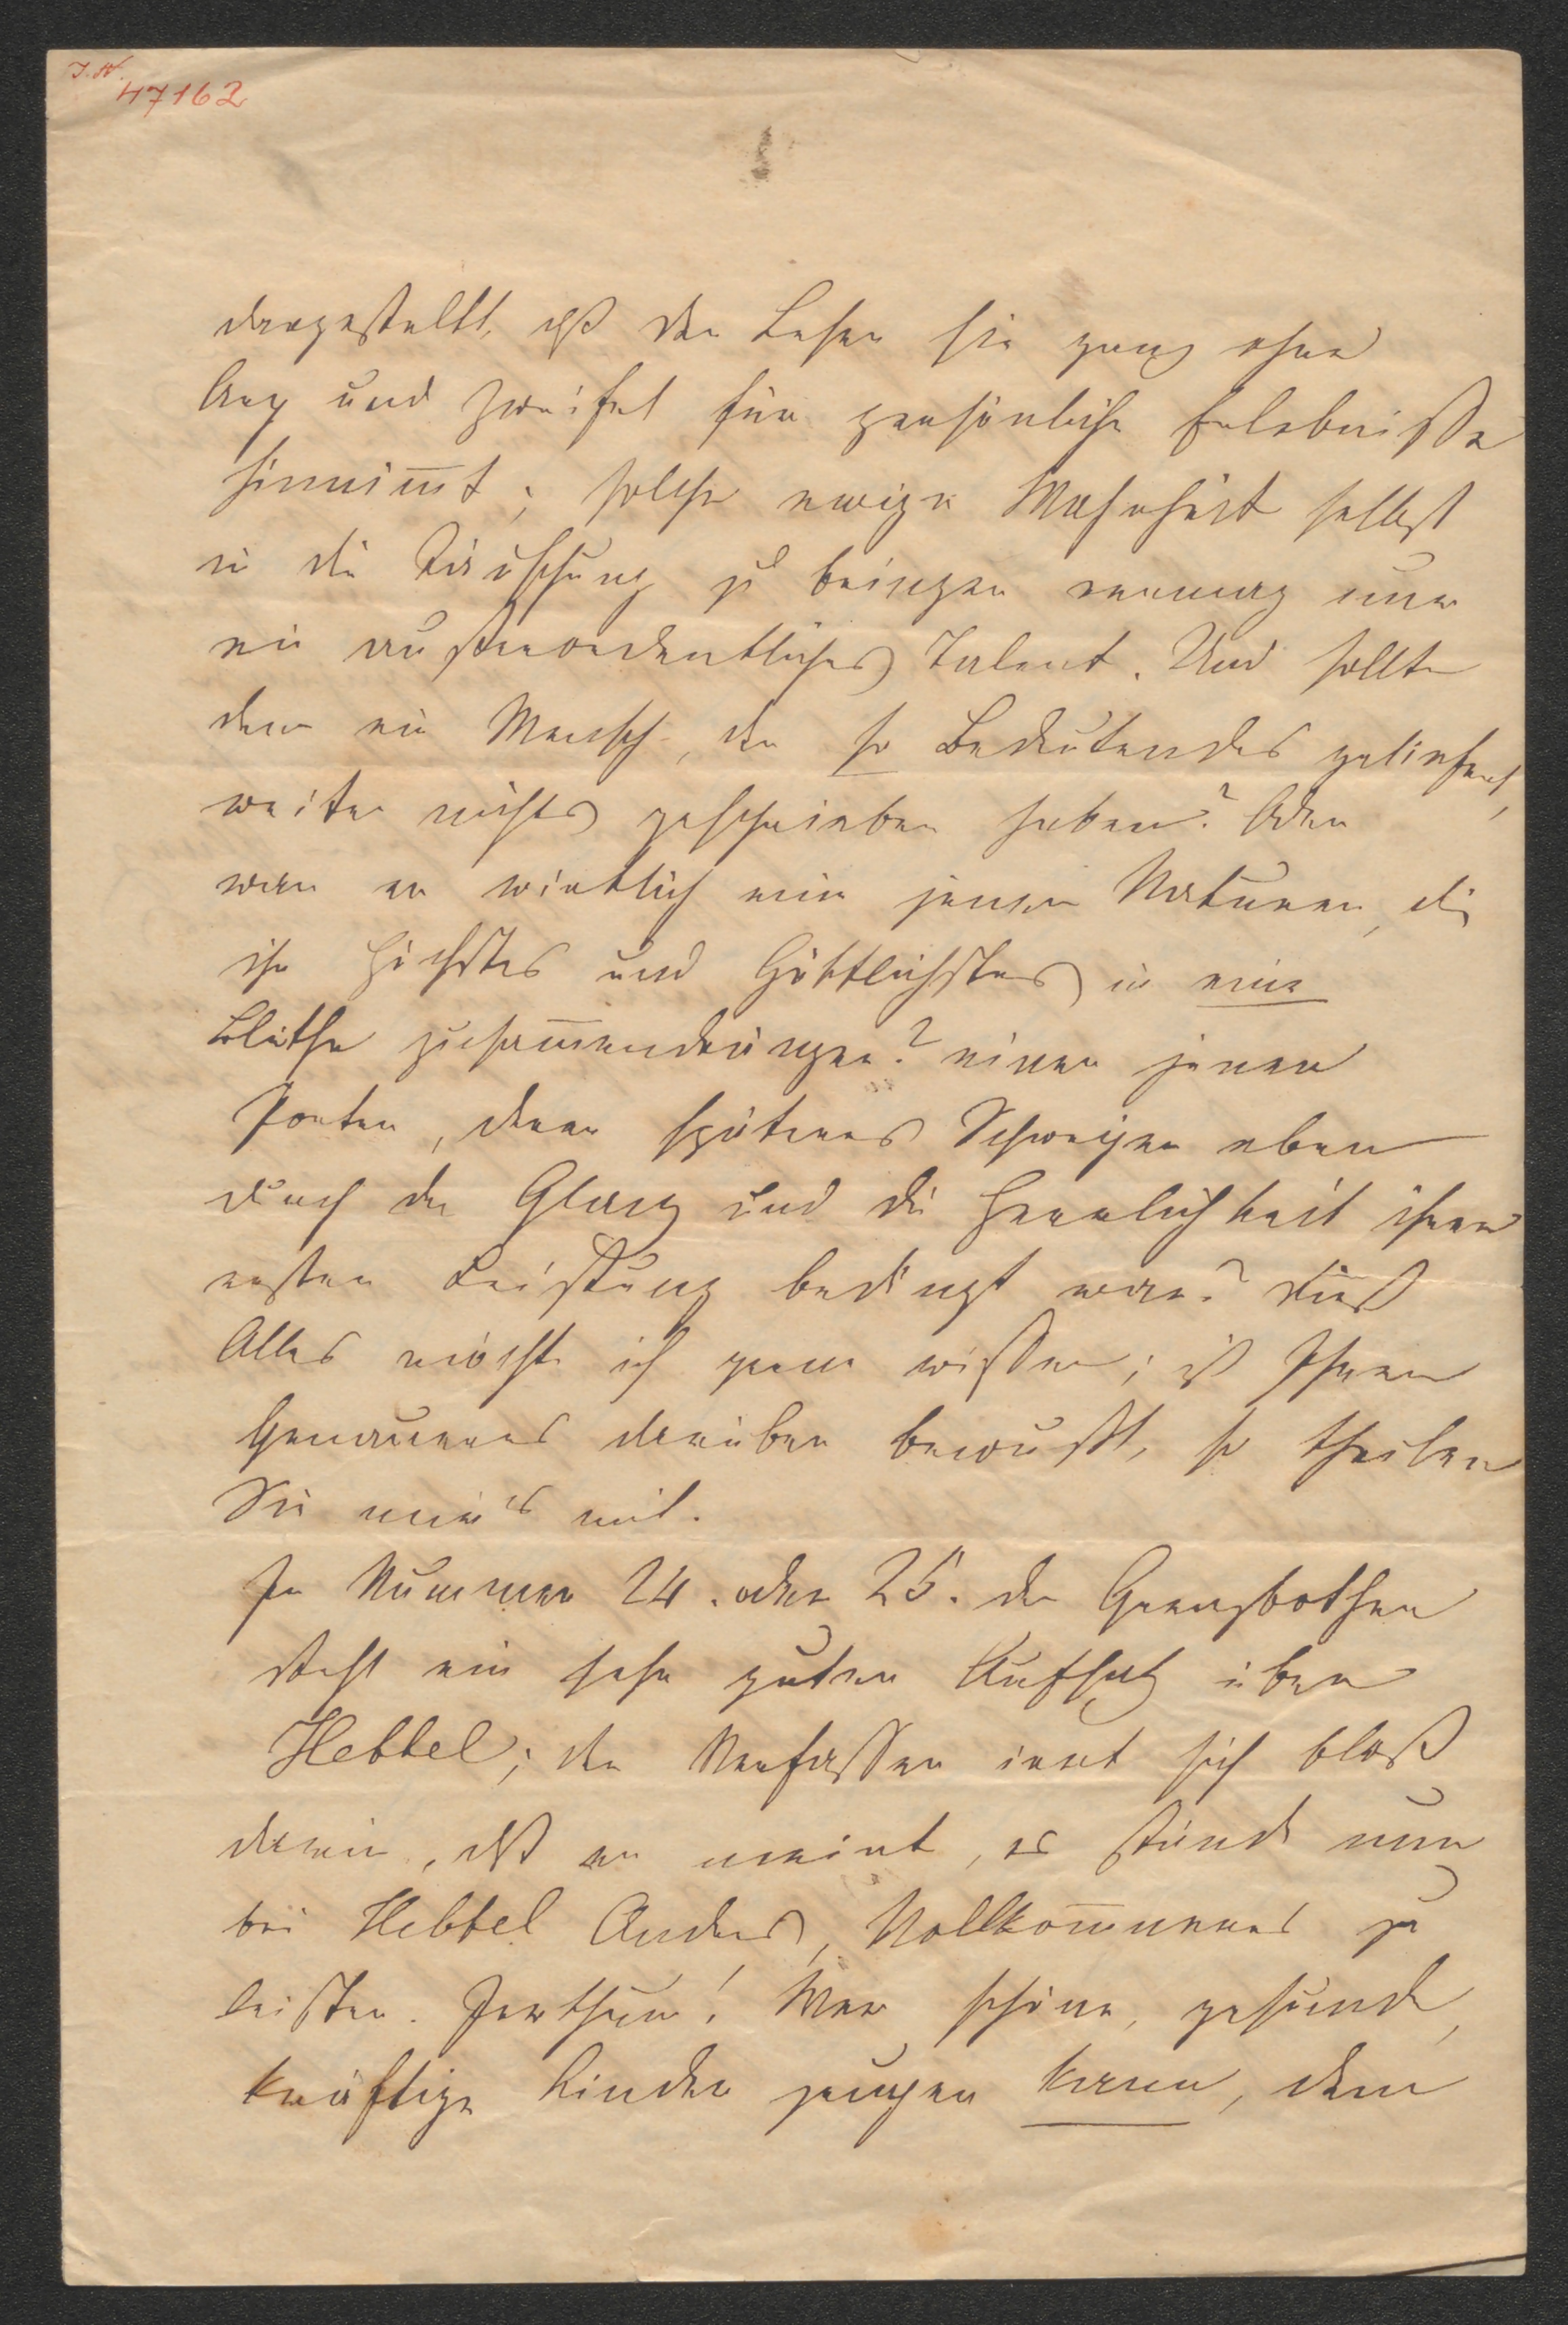 I. N.
47162
dargestellt, daß der Leser sie ganz ohne
Arg und Zweifel für persönliche Erlebniße
hinnim̄t; solche ewige Wahrheit selbst
in die Täuschung zu bringen vermag nur
ein außerordentliches Talent. Und sollte
denn ein Mensch, der so Bedeutendes geliefert,
weiter nichts geschrieben haben? Oder
war er wirklich eine jener Naturen, die
ihr Höchstes und Göttlichstes in eine
Blüthe zusam̄endrängen? einer jener
Poeten, deren späteres Schweigen eben
durch den Glanz und die Herrlichkeit ihrer
ersten Leistung bedingt war? Dieß
Alles möcht' ich gerne wissen; ist Ihnen
Genaueres darüber bewußt, so theilen
Sie mir's mit.
In Nummer 24. oder 25. der Grenzbothen
steht ein sehr guter Aufsatz über
Hebbel; der Verfasser irrt sich bloß
darin, daß er meint, es stünde nun
bei Hebbel Anders, Vollkom̄neres zu
leisten. Irrthum! Wer schöne, gesunde,
kräftige Kinder zeugen kann, dem